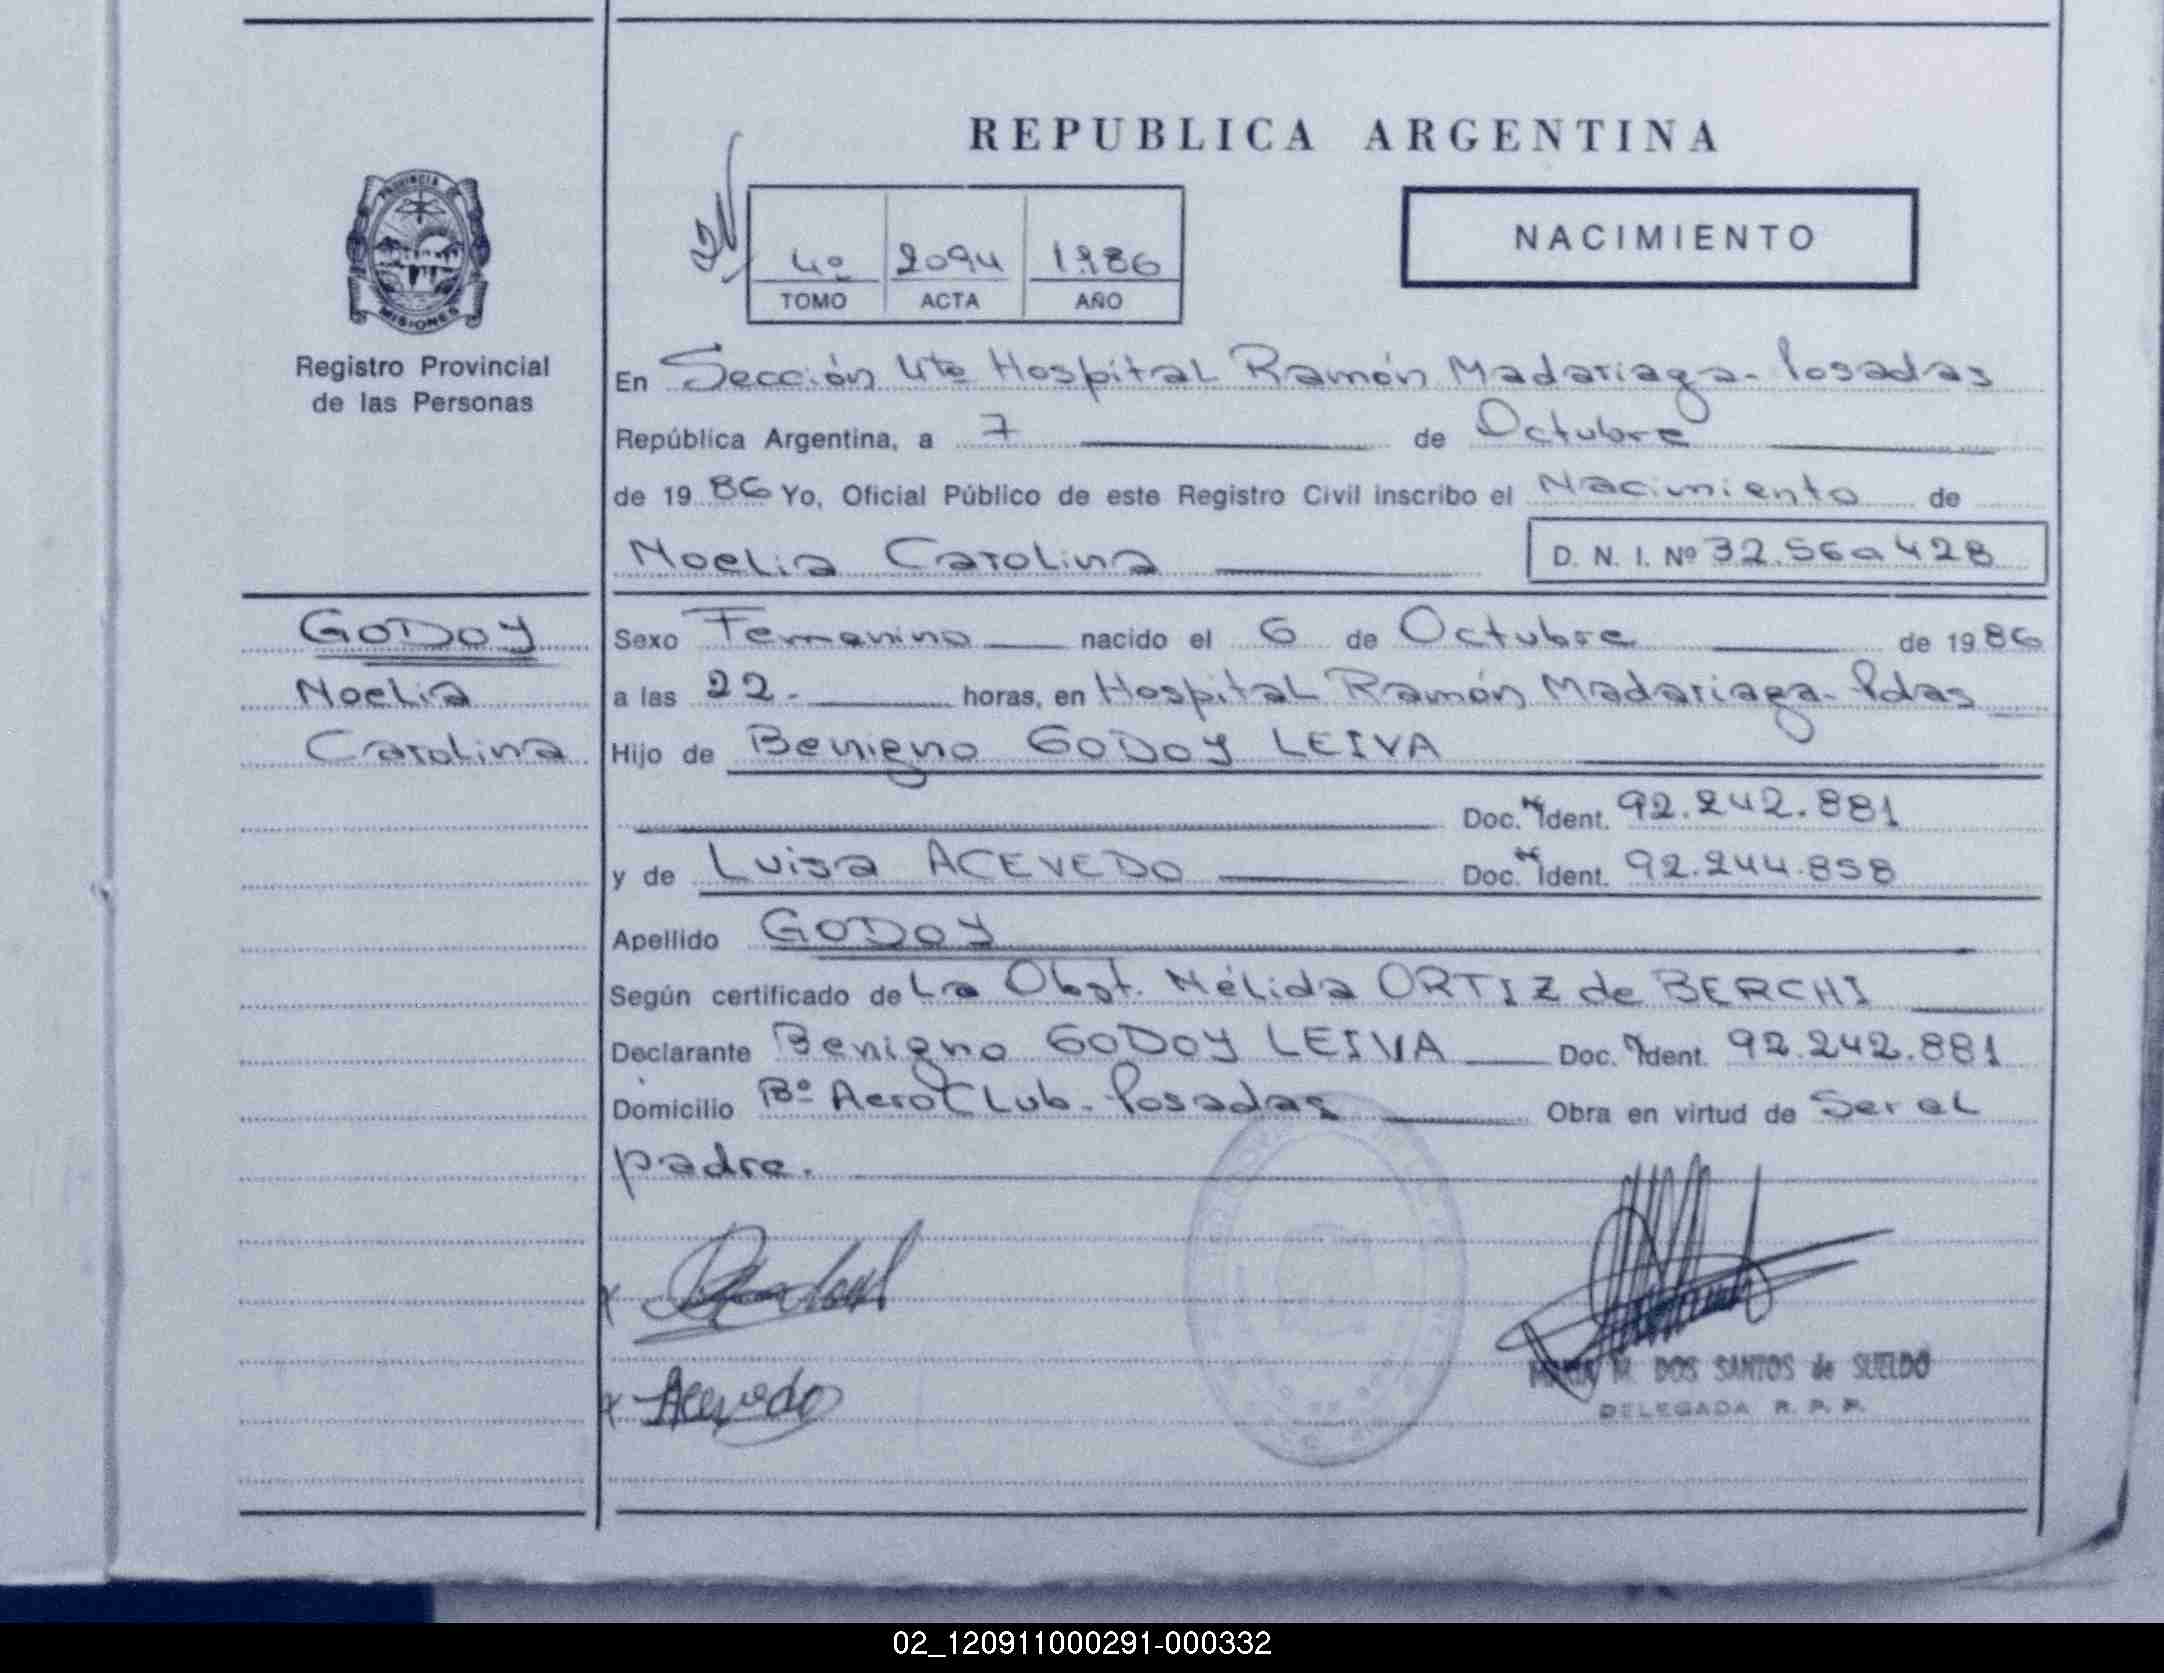 REPUBLICA ARGENTINA
NACIMIENTO
4º 2094 1986
TOMO ACTA AÑO
PROVINCIA DE
MISIONES
Registro Provincial
de las Personas
En Sección 4ta Hospital Ramón Madariaga - Posadas
República Argentina, a 7 de Octubre
de 1986 Yo, Oficial Público de este Registro Civil inscribo el Nacimiento de
Noelia Carolina D. N. I. Nº
GODOY
Noelia
Carolina
Sexo Femenino nacido el 6 de Octubre de 1986
a las 22.- horas, en Hospital Ramón Madariaga - Pdas
Hijo de Benigno GODOY LEIVA
Doc. Ident. 92.242.881
y de Luisa ACEVEDO Doc. Ident. 92.244.858
Apellido GODOY
Según certificado de La Obst. Nélida ORTIZ de BERCHI
Declarante Benigno GODOY LEIVA Doc. Ident. 92.242.881
Domicilio Bº Aero Club - Posadas Obra en virtud de Ser el
padre.
Acevedo
M. DOS SANTOS de SUELDO
DELEGADA R. P. P.
02_120911000291-000332